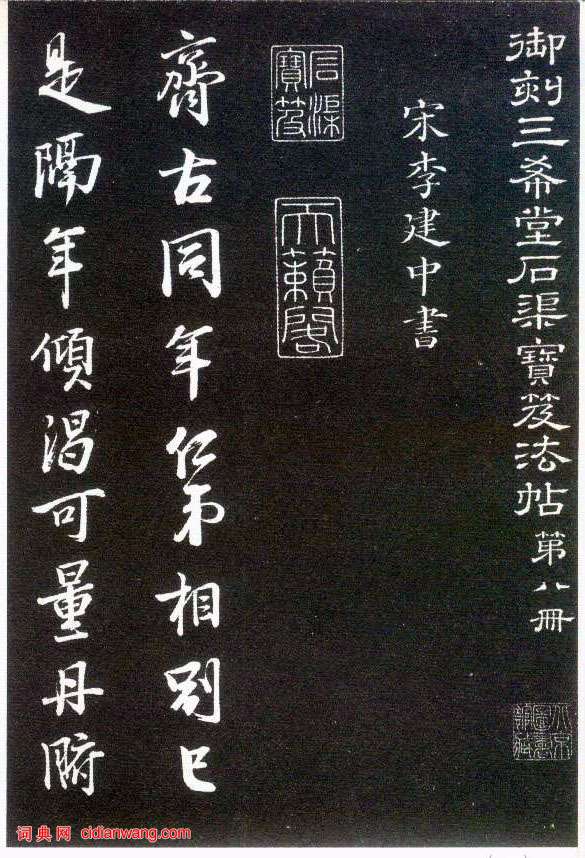 御刻三希堂石渠寶笈法帖第八冊
宋李建中書
石渠寶笈
天籟閣
齊古同年仁弟相別已
是隔年傾渴可量丹腑
词典网 cidianwang.com